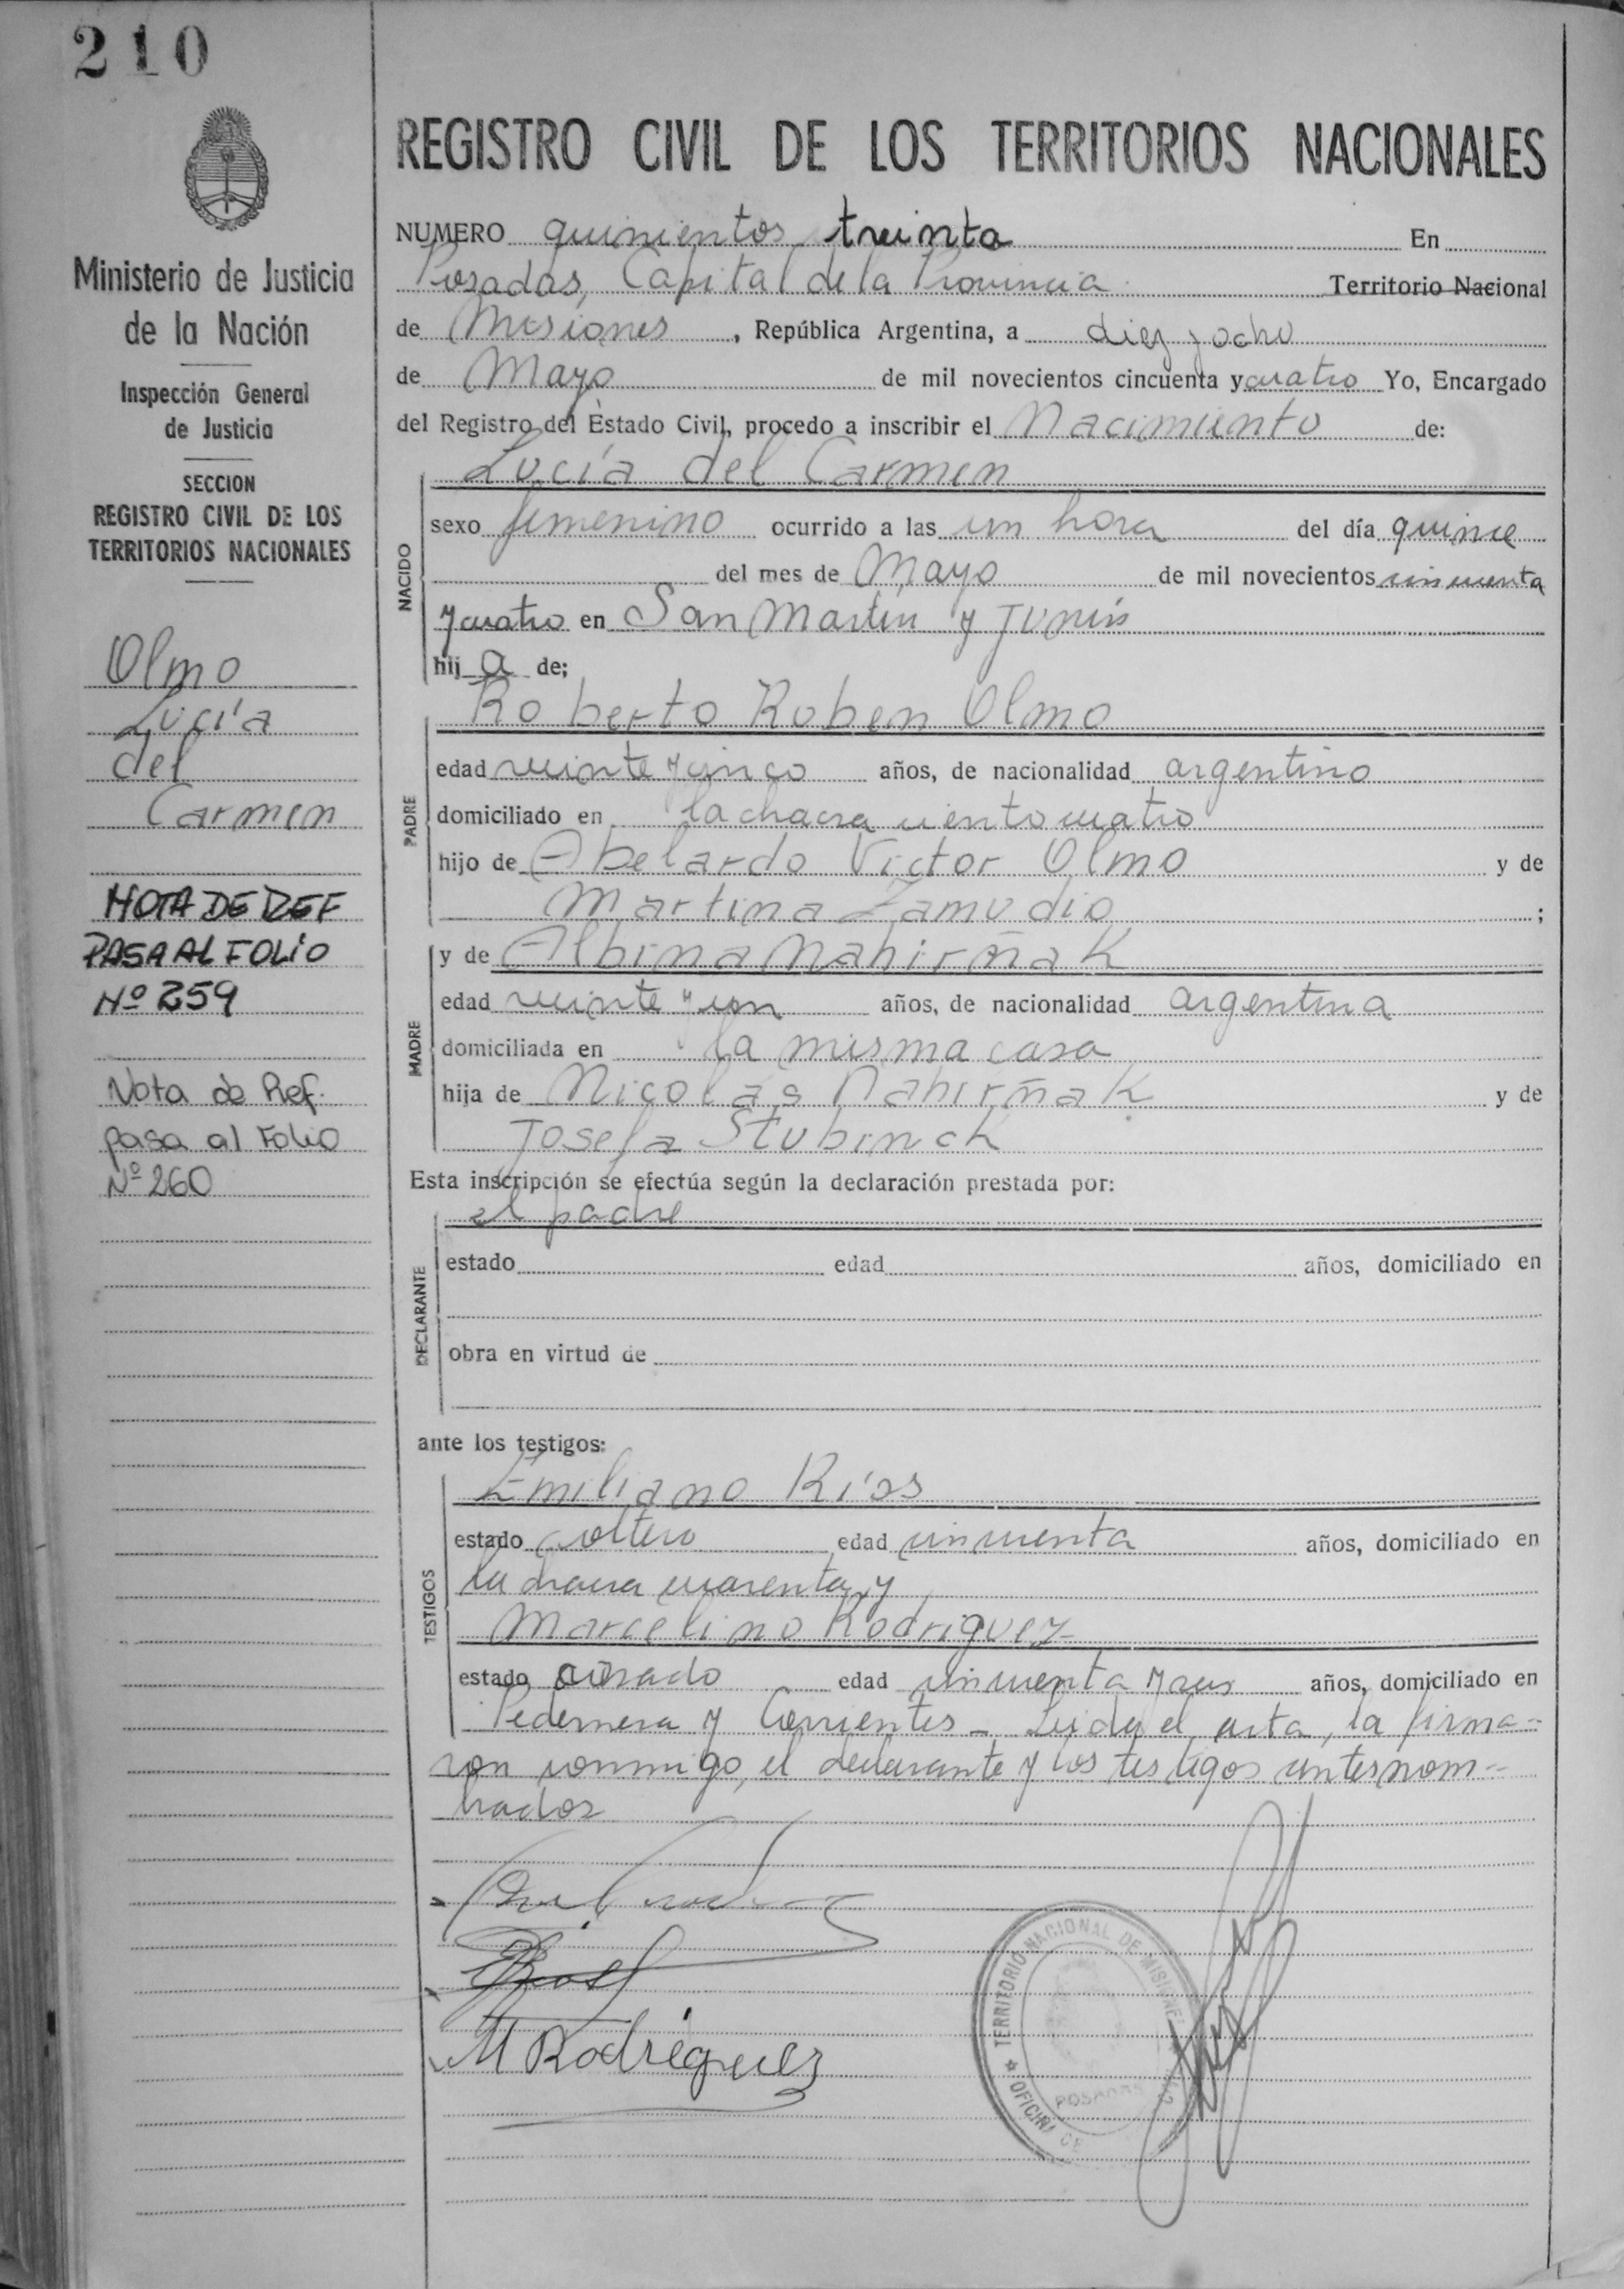 210
Ministerio de Justicia
de la Nación
Inspección General
de Justicia
SECCION
REGISTRO CIVIL DE LOS
TERRITORIOS NACIONALES
Olmo
Lucía
del
Carmen
NOTA DE REF
PASA AL FOLIO
Nº 259
Nota de Ref.
pasa al Folio
Nº 260
REGISTRO CIVIL DE LOS TERRITORIOS NACIONALES
NUMERO quinientos treinta En
Posadas, Capital de la Provincia Territorio Nacional
de Misiones, República Argentina, a diez y ocho
de Mayo de mil novecientos cincuenta y cuatro Yo, Encargado
del Registro del Estado Civil, procedo a inscribir el Nacimiento de:
Lucía del Carmen
NACIDO
sexo femenino ocurrido a las un hora del día quince
del mes de Mayo de mil novecientos cincuenta
y cuatro en San Martín y Junín
hij a de;
Roberto Ruben Olmo
PADRE
edad veinte y cinco años, de nacionalidad argentino
domiciliado en la chacra ciento cuatro
hijo de Abelardo Victor Olmo y de
Martina Zamudio ;
y de Albina Nahirñak
MADRE
edad veinte y un años, de nacionalidad argentina
domiciliada en la misma casa
hija de Nicolás Nahirñak y de
Josefa Stubinck
Esta inscripción se efectúa según la declaración prestada por:
el padre
DECLARANTE
estado edad años, domiciliado en
obra en virtud de
ante los testigos:
Emiliano Ríos
TESTIGOS
estado soltero edad cincuenta años, domiciliado en
la chacra cuarenta, y
Marcelino Rodriguez
estado casado edad cincuenta y seis años, domiciliado en
Pedernera y Corrientes - Leida el acta, la firma-
ron conmigo, el declarante y los testigos antes nom-
brados
M Rodriguez
TERRITORIO NACIONAL DE MISIONES
OFICINA DE
POSADAS